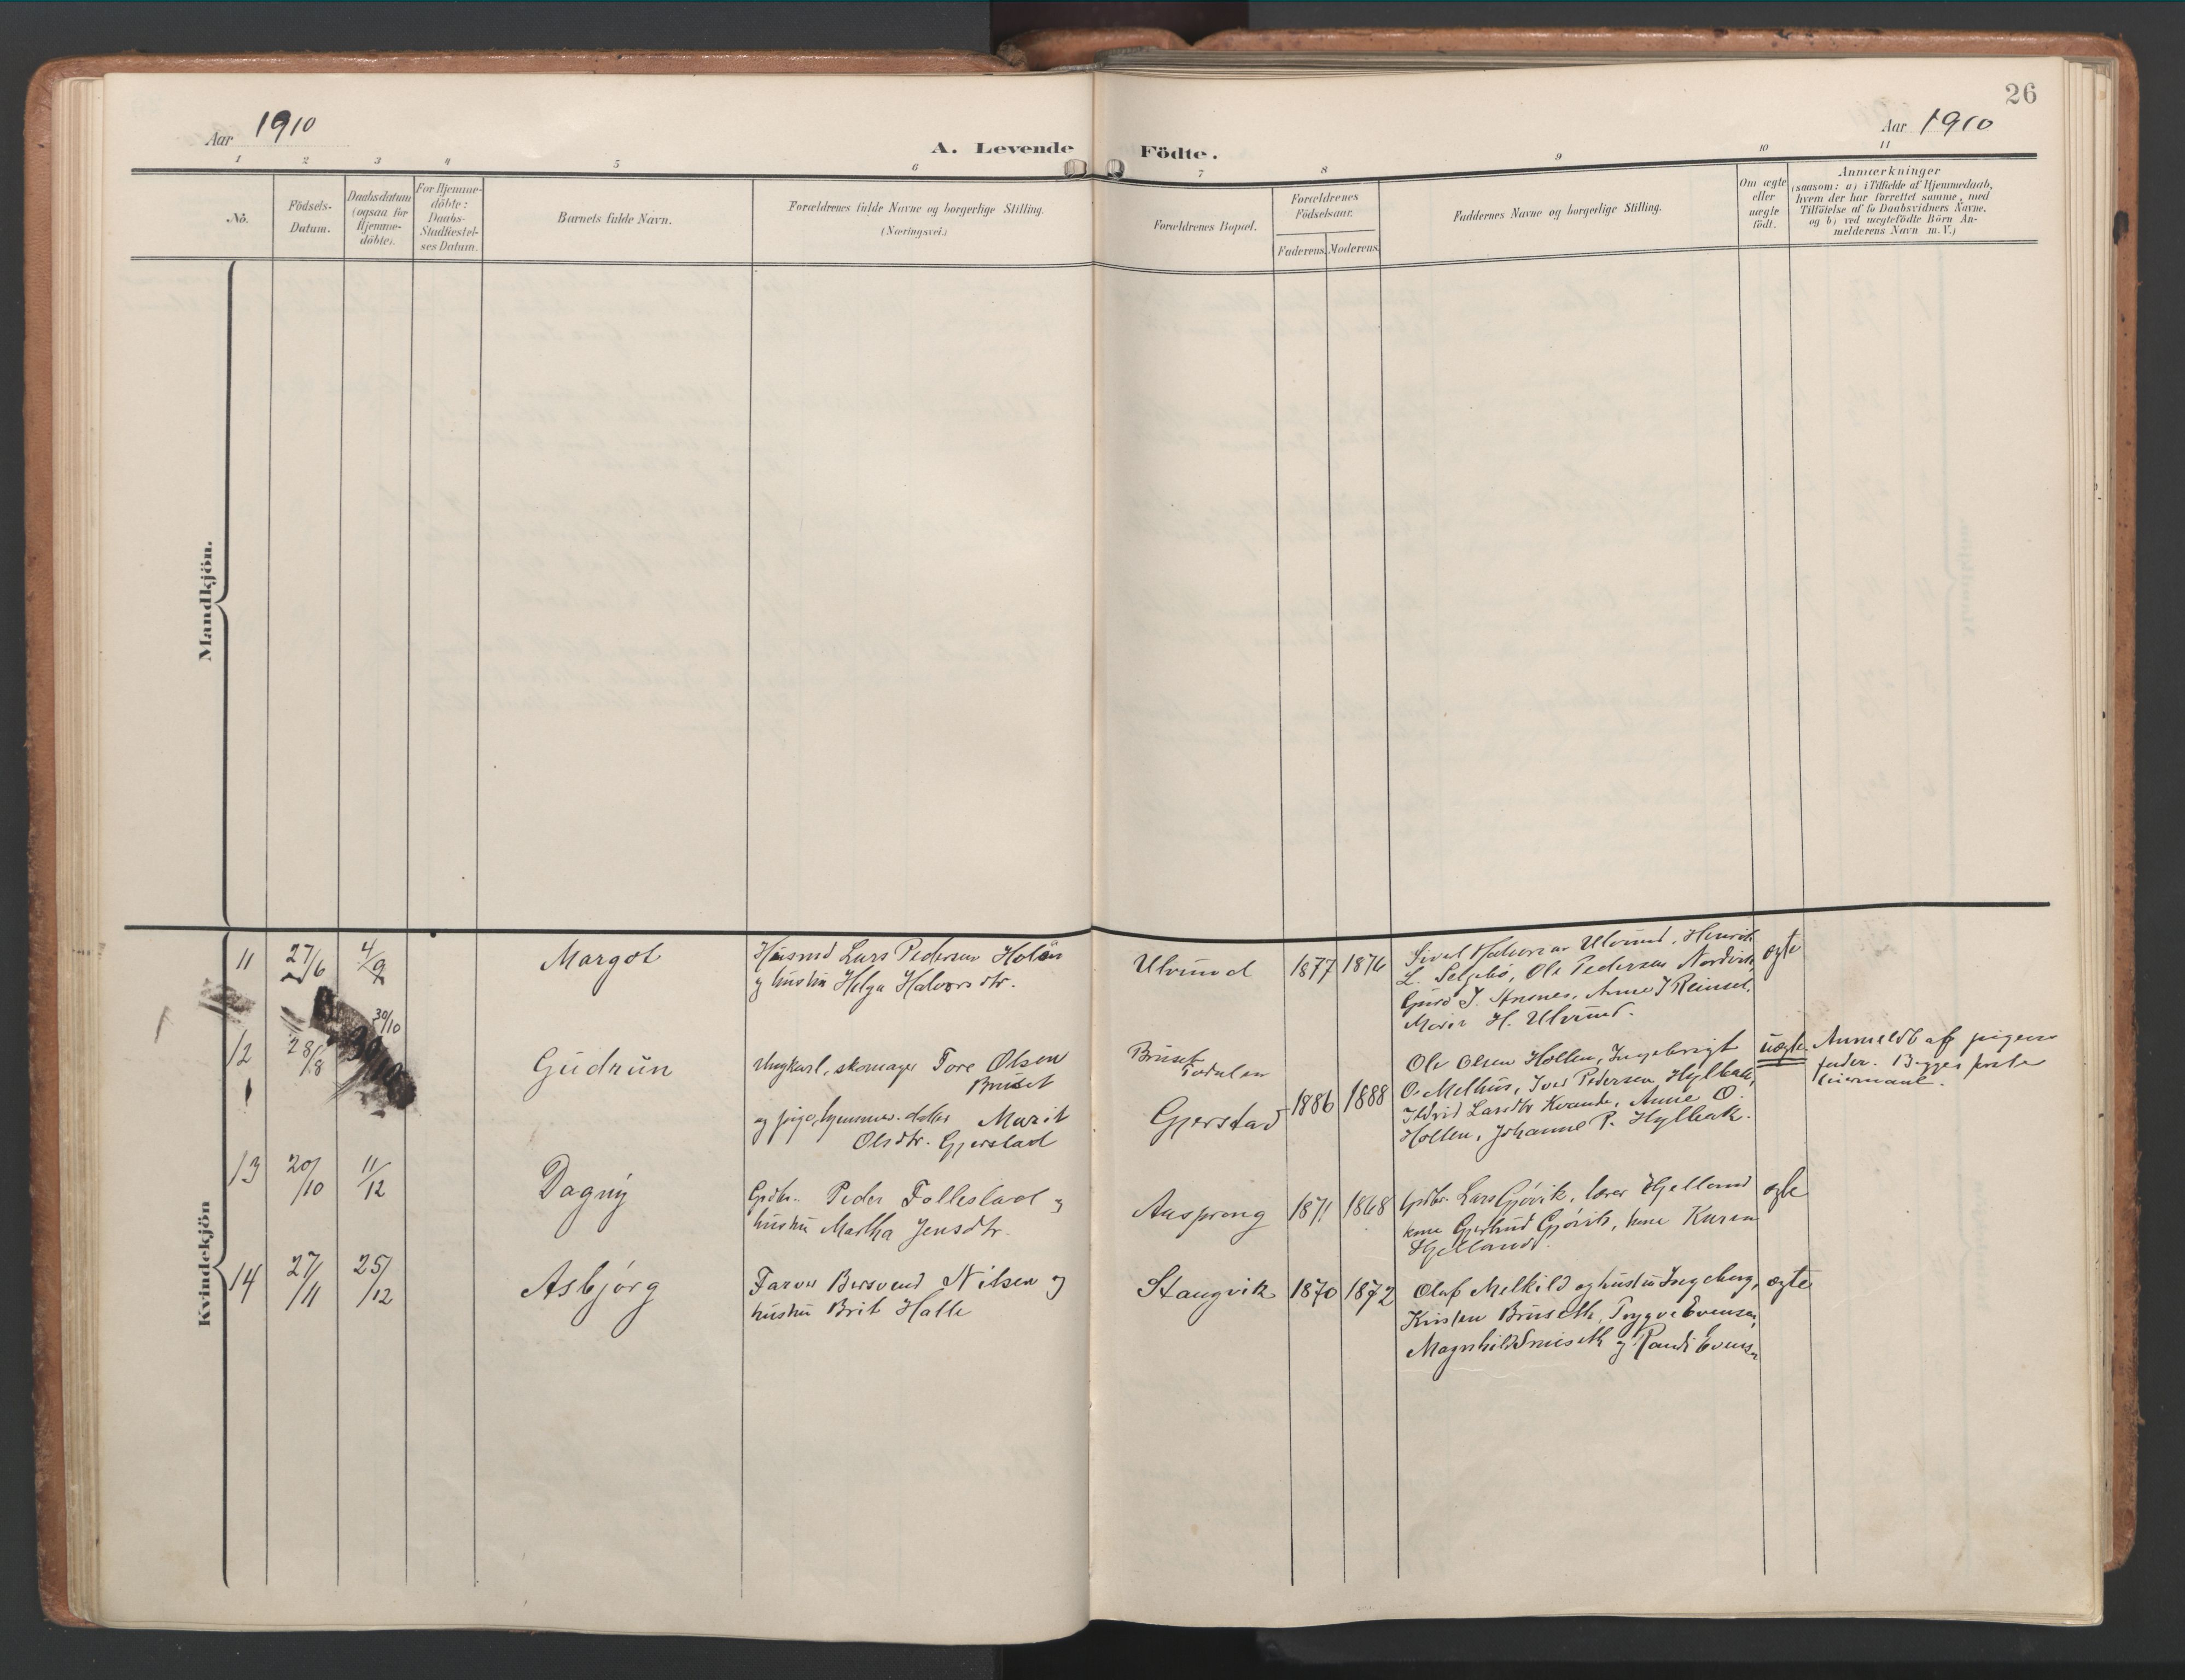 26
Aar 1910
Aar 1910
A. Levende Födte.
1 2 3 4 5 6 7 8 9 10 11
No.
Födsels-
Datum.
Daabsdatum
(ogsaa for
Hjemme-
döbte).
For Hjemme-
döbte:
Daabs-
Stadfæstel-
ses Datum.
Barnets fulde Navn.
Forældrenes fulde Navne og borgerlige Stilling.
(Næringsvei.)
Forældrenes Bopæl.
Forældrenes
Födselsaar.
Faderens. Moderens.
Faddernes Navne og borgerlige Stilling.
Om ægte
eller
uægte
födt.
Anmærkninger
(saasom: a) i Tilfælde af Hjemmedaab,
hvem der har forrettet samme, med
Tilföielse af to Daabsvidners Navne,
og b) ved uægtefödte Börn An-
melderens Navn m. V.)
Mandkjön.
Kvindekjön
11 27/6 4/9 Margot
Husmd Lars Pedersen Holøn
og hustru Helga Halvorsdtr.
Ulvund 1877 1876
Sivert Halvorsen Ulvund, Henrik
L. Selgebö, Ole Pedersen Nordvik,
Guro J. Aasnes, Anne J Reinset,
Marit H. Ulvund.
ægte
12 28/8 30/10 Gudrun
Ungkarl, skomager Tore Olsen
Bruset
og pige, hjemmev. datter Marit
Olsdtr. Gjerstad
Bruset
Todalen
Gjerstad 1886 1888
Ole Olsen Hollen, Ingebrigt
O. Melhus, Iver Pedersen Hylbak,
Ildrid Larsdtr Kvande, Anne O.
Hollen, Johanne P. Hylbak.
uægte
Anmeldt af pigens
fader. Begges förste
leiermaal.
13 20/10 11/12 Dagny
Grdbr. Peder Tollestad og
hustru Martha Jensdtr.
Ansprong 1871 1868
Grdbr. Lars Gjövik, lærer Hjelland
kone Gjertrud Gjövik, kone Karen
Hjelland.
ægte
14 27/11 25/12 Asbjörg
Farver Bersvend Nilsen og
hustru Brit Halle
Stangvik 1870 1872
Oluf Melkild og hustru Ingeborg,
Kristen Bruseth, Trygve Evensen,
Magnhild Bruseth og Randi Evensen
ægte